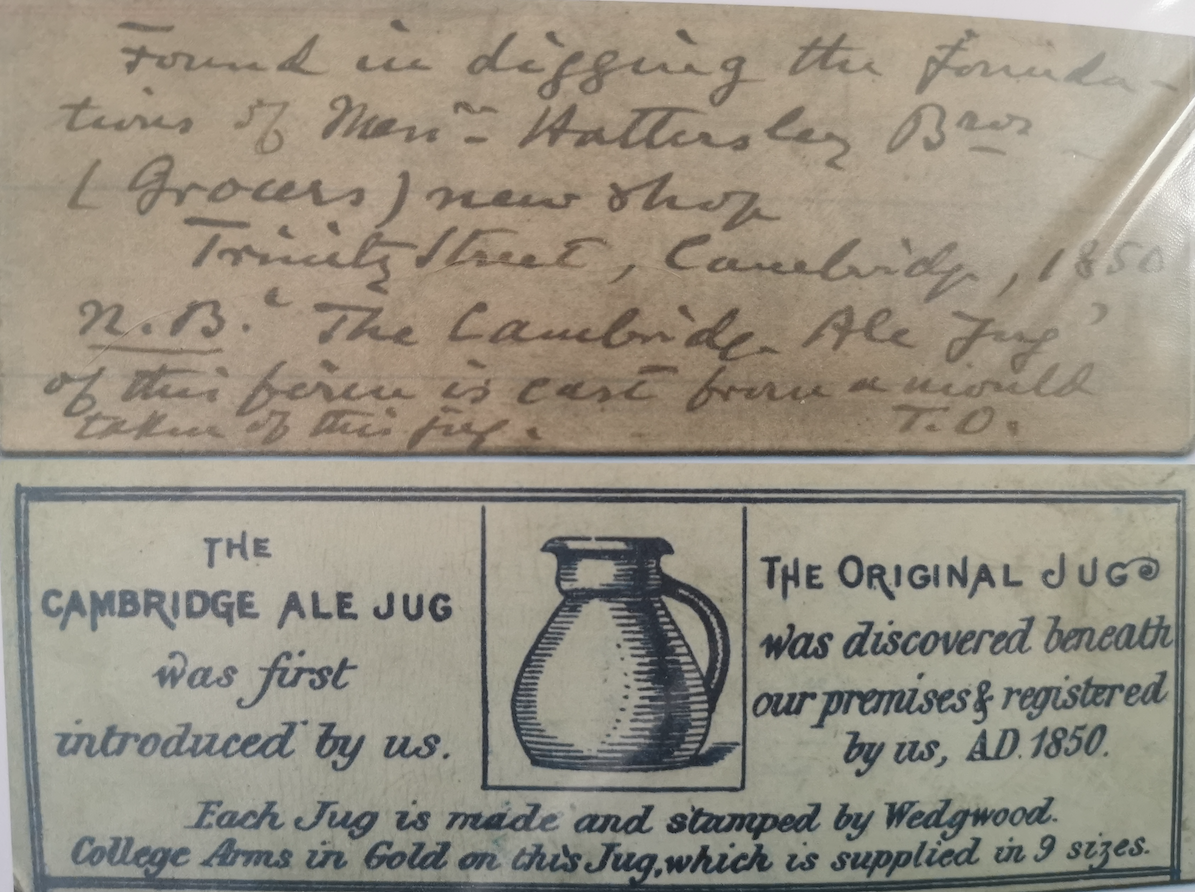 Found in digging the Founda-
tions of Messrs Hattersley Bros
(Grocers) new shop
Trinity Street, Cambridge, 1850
N.B. "The Cambridge Ale Jug"
of this firm is cast from a mould
taken of this jug. T.O.
THE
CAMBRIDGE ALE JUG
was first
introduced by us.
THE ORIGINAL JUG
was discovered beneath
our premises & registered
by us, A.D. 1850.
Each Jug is made and stamped by Wedgwood.
College Arms in Gold on this Jug, which is supplied in 9 sizes.